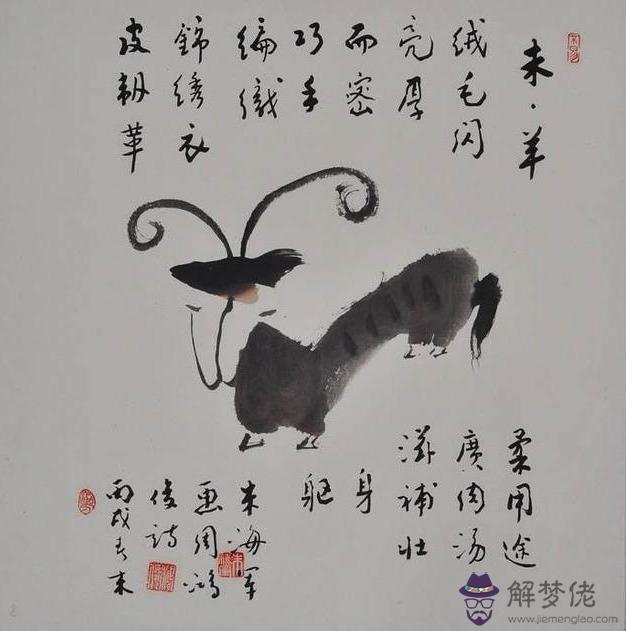 未·羊
绒毛闪
亮厚
而密
巧手
编織
锦绣衣
皮韧革
柔用途
廣肉汤
滋補壮
身
躯
朱海军
画周鸿
俊诗
丙戌春末
解梦佬
www.jiemenglao.com